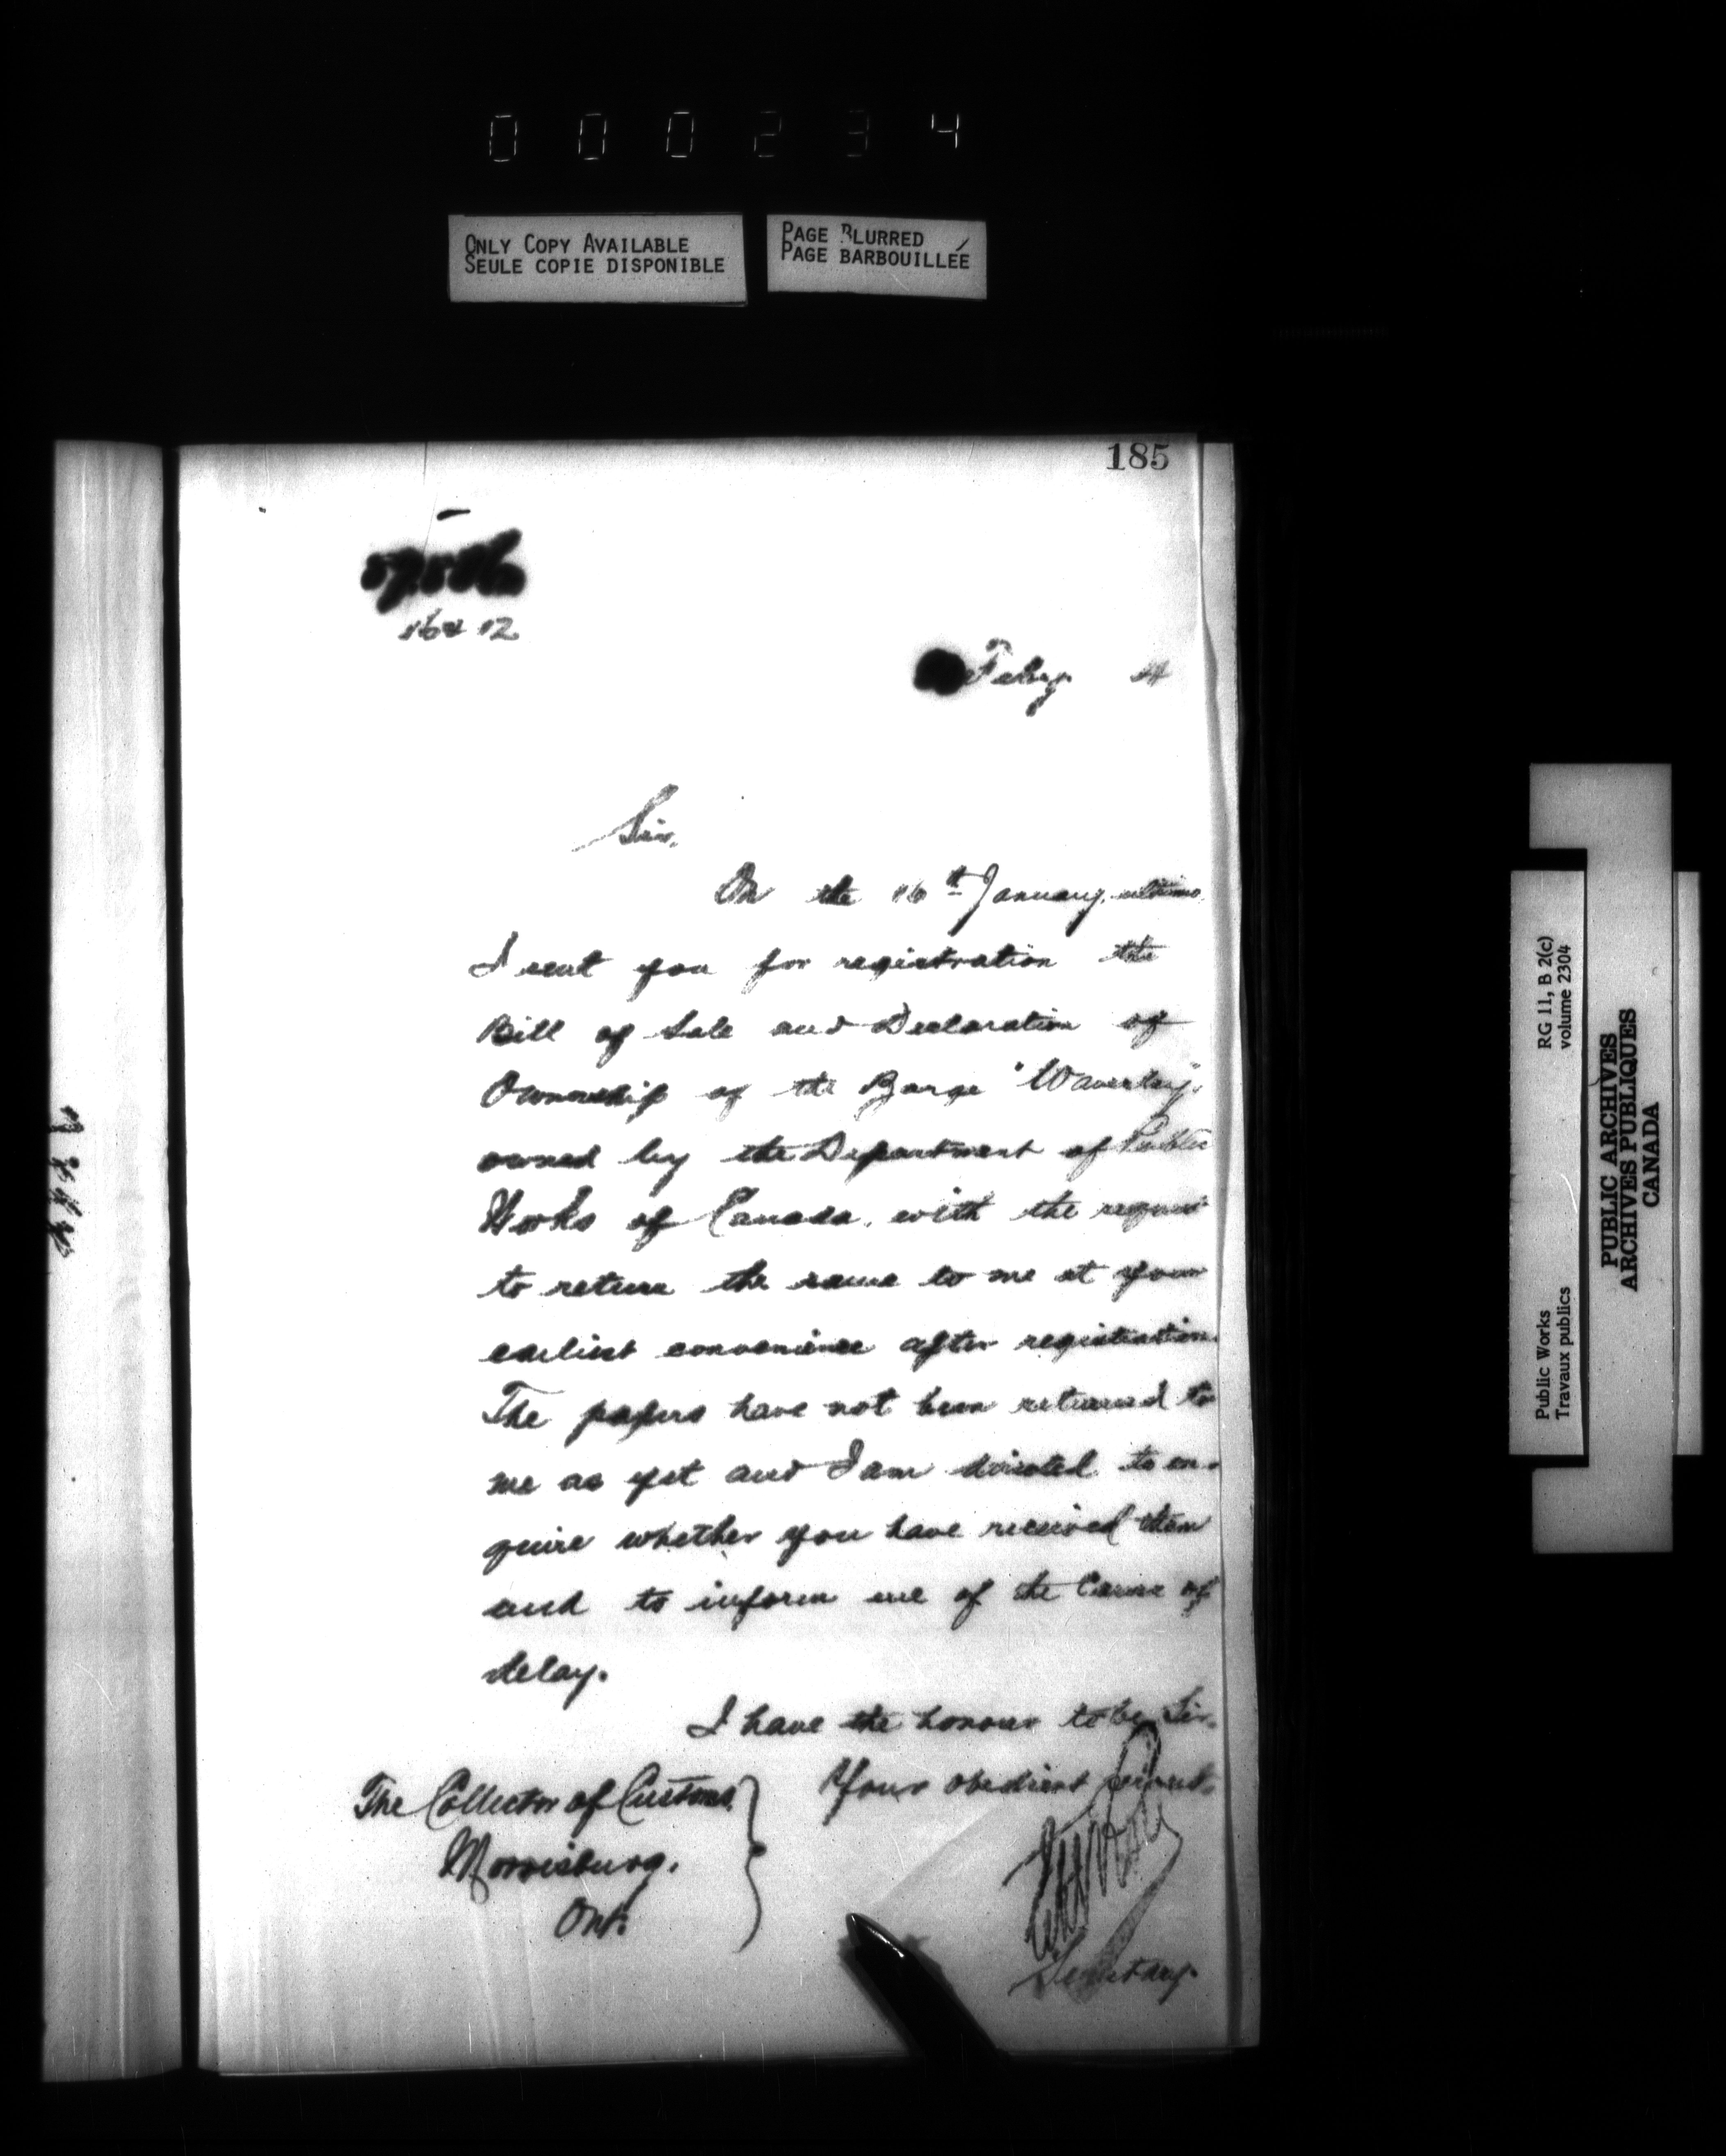 0 0 0 2 3 4
ONLY COPY AVAILABLE
SEULE COPIE DISPONIBLE
PAGE BLURRED
PAGE BARBOUILLÉE
185
Feby. 4
Sir,
On the 16th January, ultimo
I sent you for registration the
Bill of Sale and Declaration of
Ownership of the Barge "Waverley",
owned by the Department of Public
Works of Canada, with the request
to return the same to me at your
earliest convenience after registration.
The papers have not been returned to
me as yet and I am directed to en-
quire whether you have received them
and to inform me of the Cause of
delay.
I have the honour to be, Sir,
Your obedient servant,
The Collector of Customs,
Morrisburg.
Ont.
Secretary.
RG 11, B 2(c)
volume 2304
Public Works
Travaux publics
PUBLIC ARCHIVES
ARCHIVES PUBLIQUES
CANADA